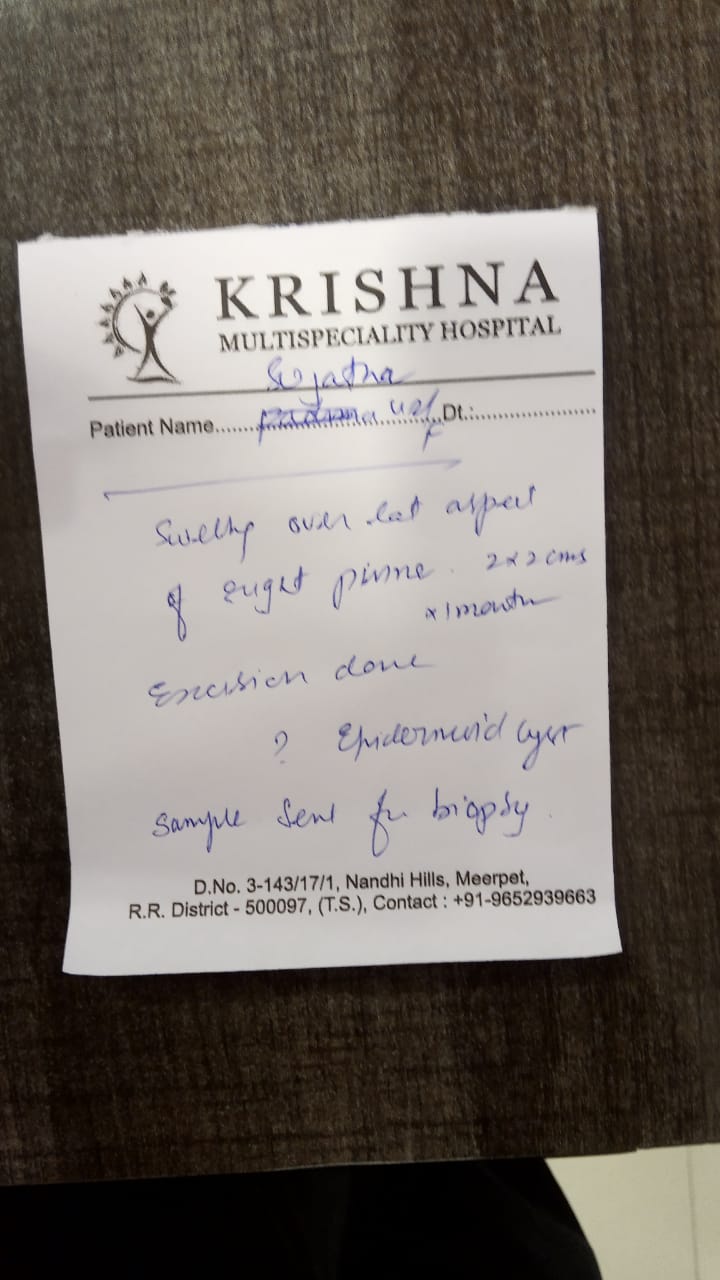 KRISHNA
MULTISPECIALITY HOSPITAL
Sujatha
Patient Name.......................................Dt.:......................
F
Swelling over lat aspect
of right pinna. 2x2cms
x1month
Excision done
? Epidermoid cyst
Sample sent for biopsy.
D.No. 3-143/17/1, Nandhi Hills, Meerpet,
R.R. District - 500097, (T.S.), Contact : +91-9652939663